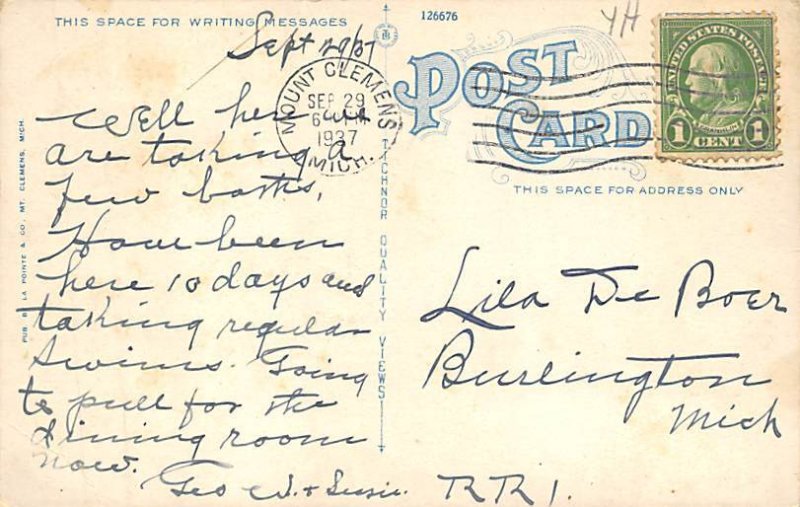 THIS SPACE FOR WRITING MESSAGES
126676
YH
Sept 29/37
MOUNT CLEMENS
SEP 29
6
1937
MICH.
POST
CARD
UNITED STATES POSTAGE
FRANKLIN
1 CENT 1
THIS SPACE FOR ADDRESS ONLY
Well here we
are taking a
few baths.
Have been
here 10 days and
taking regular
swims. Going
to pull for the
dining room
now.
Geo W. & Susie.
PUB. BY LA POINTE & CO., MT. CLEMENS, MICH.
TICHNOR QUALITY VIEWS
Lila De Boer
Burlington
Mich
RR 1.